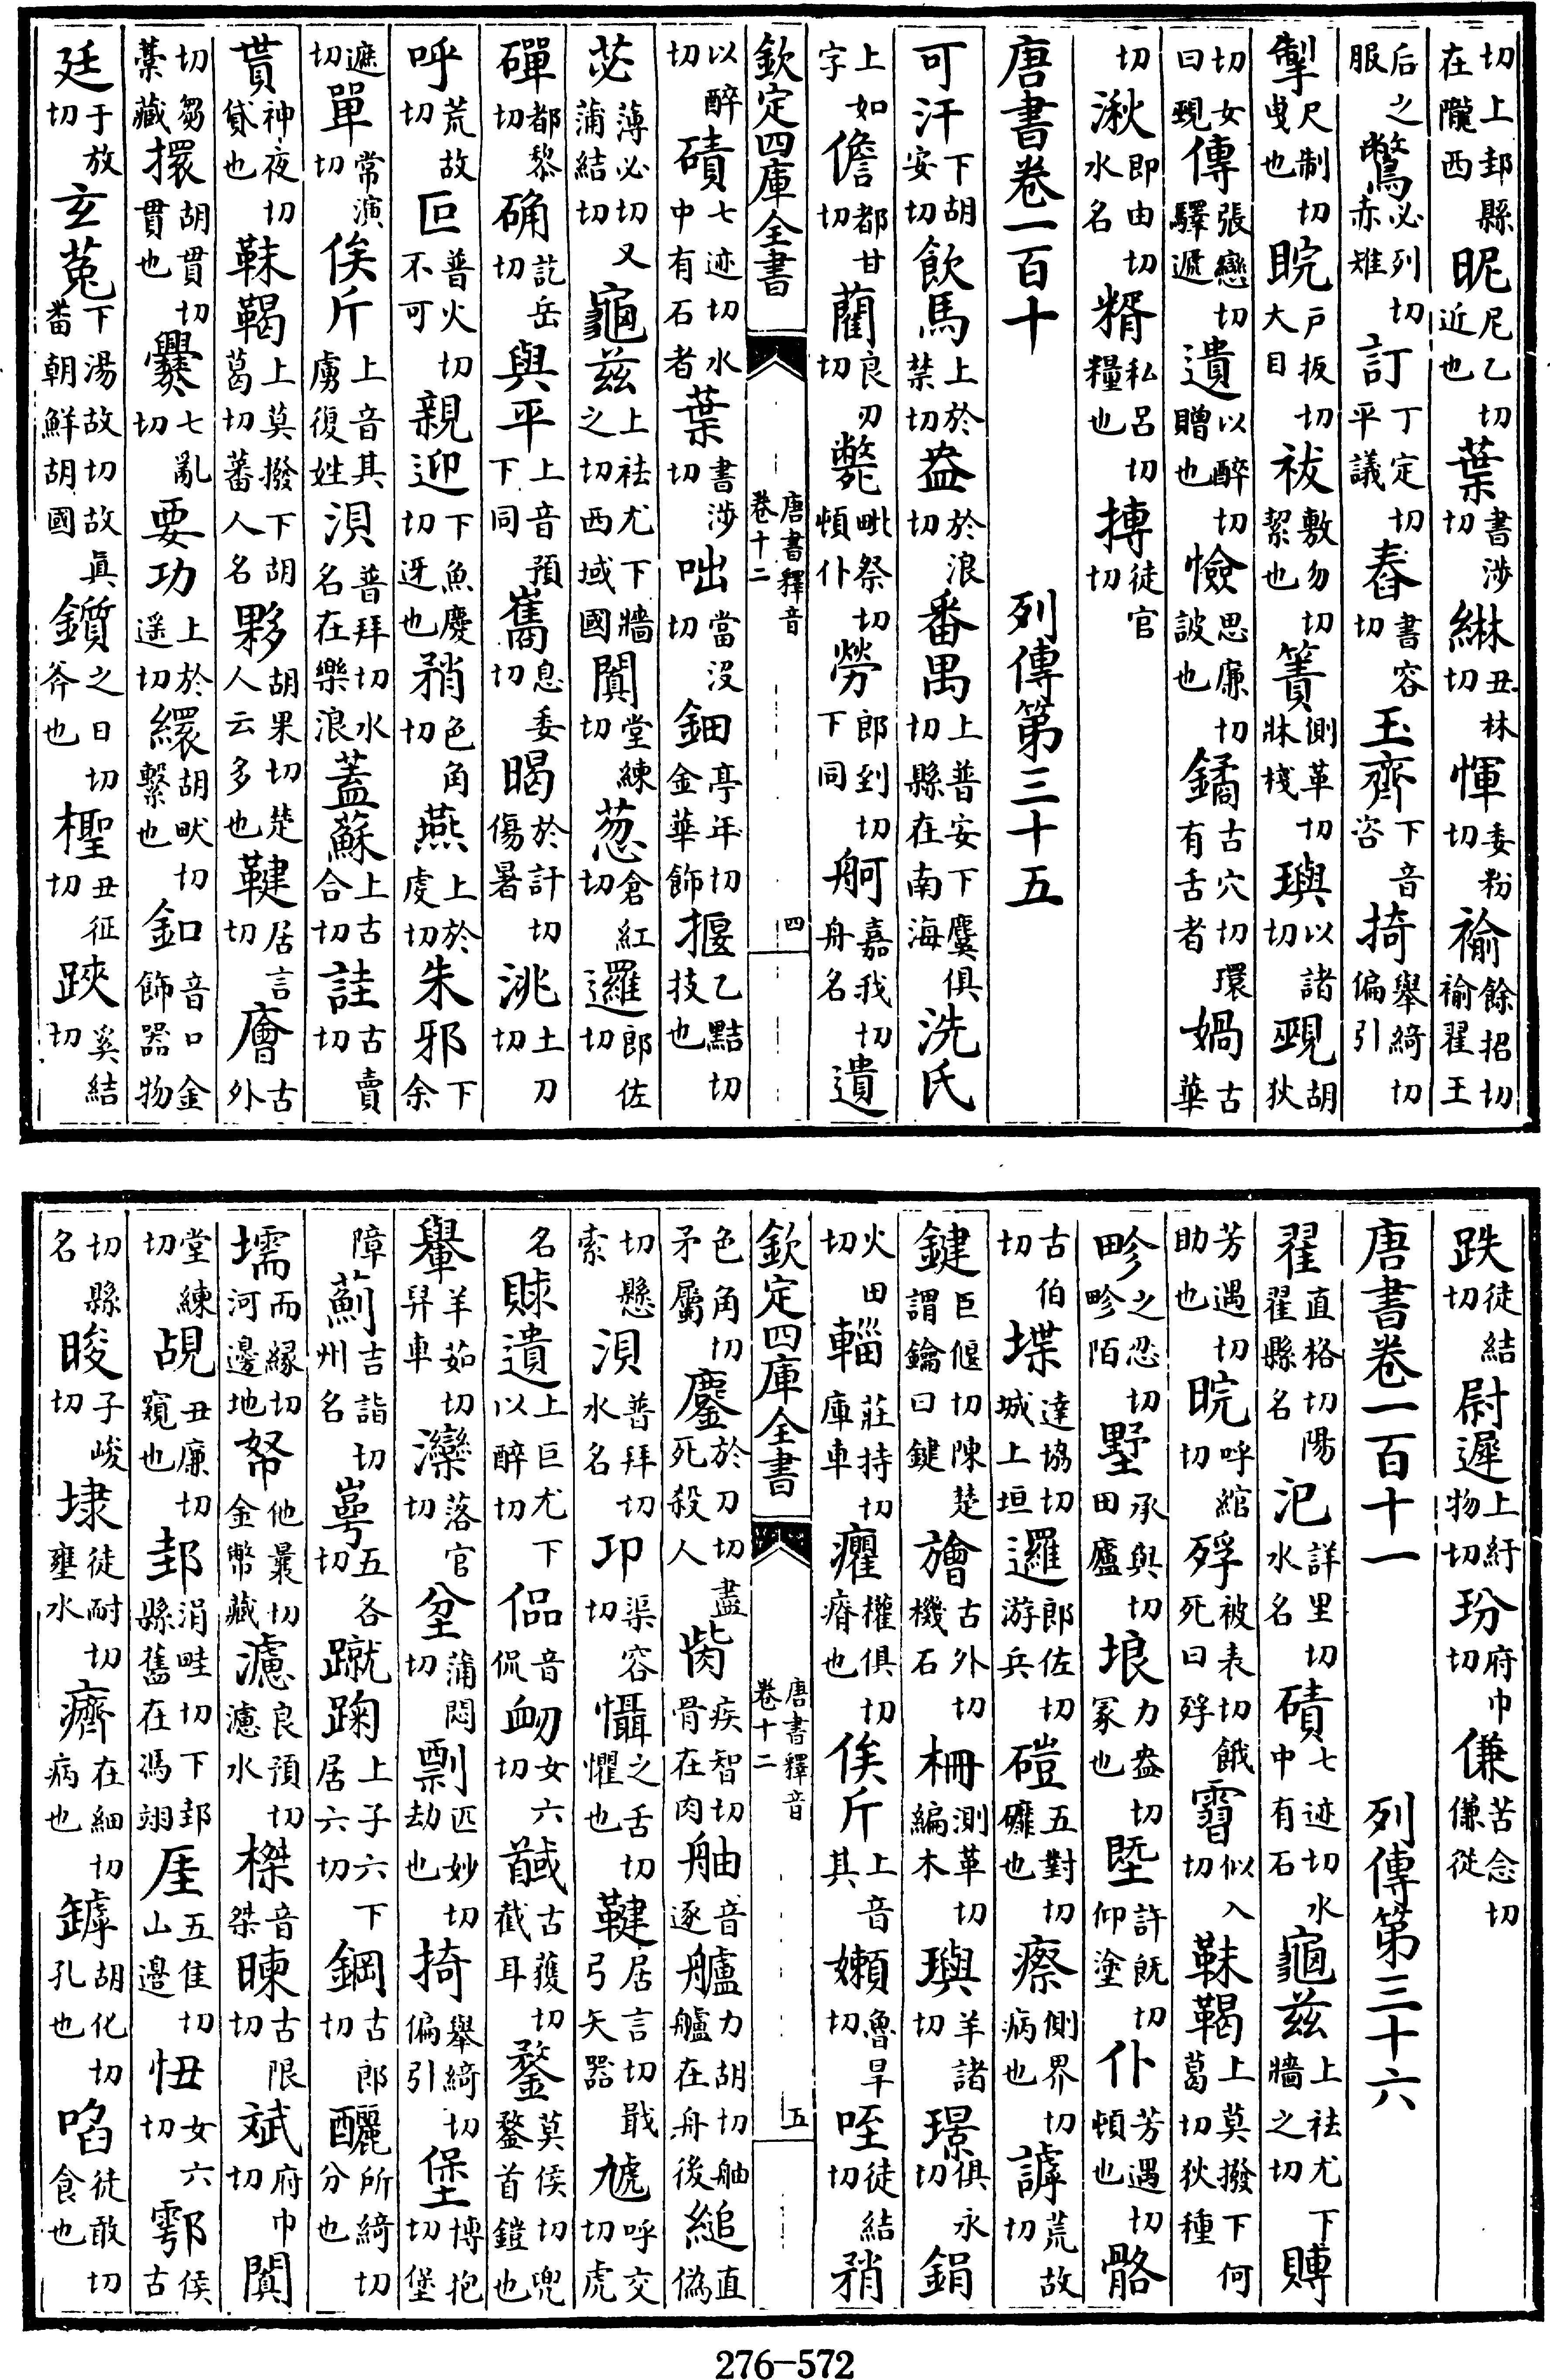 切上邽縣在隴西昵尼乙切近也葉書涉切綝丑林切惲委粉切褕餘招切褕翟王
后之服鷩必列切赤雉訂丁定切平議舂書容切玉齊下音咨掎舉綺切偏引
掣尺制切曳也睆戸板切大目祓敷勿切絜也簀側革切牀棧璵以諸切覡胡狄
切女曰覡傳張戀切驛遞遺以醉切贈也憸思廉切詖也鐍古穴切環有舌者媧古華
切湫即由切水名糈私呂切糧也摶徒官切
唐書卷一百十　列傳第三十五
可汗下胡安切飲馬上於禁切盎於浪切番禺上普安下麌俱切縣在南海洗氏
上如字儋都甘切藺良刃切斃毗祭切頓仆勞郎到切下同舸嘉我切舟名遺
以醉切磧七迹切水中有石者葉書涉切咄當沒切鈿亭年切金華飾揠乙黠切技也
苾薄必切又蒲結切龜茲上袪尤下牆之切西域國闐堂練切葱倉紅切邏郎佐切
磾都黎切确訖岳切與平上音預下同嶲息委切暍於訐切傷暑洮土刀切
呼荒故切叵普火切不可親迎下魚慶切迓也矟色角切燕上於䖍切朱邪下余
遮切單常演切俟斤上音其虜復姓浿普拜切水名在樂浪蓋蘇上古合切詿古賣切
貰神夜切貸也靺鞨上莫撥下胡葛切蕃人名夥胡果切楚人云多也鞬居言切廥古外
切芻藁藏擐胡貫切貫也爨七亂切要功上於遥切繯胡畎切繫也釦音口金飾器物
廷于放切玄菟下湯故切故真番朝鮮胡國鑕之日切斧也檉丑征切䟐奚結切
跌徒結切尉遲上紆物切玢府巾切傔苦念切傔從
唐書卷一百十一　列傳第三十六
翟直格切陽翟縣名汜詳里切水名磧七迹切水中有石龜茲上袪尤下牆之切賻
芳遇切助也睆呼綰切殍被表切餓死曰殍霫似入切靺鞨上莫撥下何葛切狄種
畛之忍切畛陌墅承與切田廬埌力盎切冢也塈許既切仰塗仆芳遇切頓也骼
古伯切堞達協切城上垣邏郎佐切游兵磑五對切礳也瘵側界切病也謼荒故切
鍵巨偃切陳楚謂鑰曰鍵旝古外切機石柵測革切編木璵羊諸切璟俱永切鋗
火田切輜莊持切庫車癯權俱切瘠也俟斤上音其嬾魯旱切咥徒結切矟
色角切矛屬鏖於刀切盡死殺人胔疾智切骨在肉舳音逐艫力胡切舳艫在舟後縋直偽
切懸索浿普拜切水名邛渠容切懾之舌切懼也鞬居言切戢弓矢器虓呼交切虎
名賕遺上巨尤下以醉切偘音侃衂女六切馘古獲切截耳鍪莫侯切兜鍪首鎧也
轝羊茹切舁車灤落官切坌蒲悶切剽匹妙切劫也掎舉綺切偏引堡博抱切堡
障薊吉詣切州名崿五各切蹴踘上子六下居六切鋼古郎切釃所綺切分也
壖而緣切河邊地帑他曩切金幣藏濾良預切濾水榤音桀暕古限切斌府巾切闐
堂練切覘丑廉切窺也邽涓畦切下邽縣舊在馮翊厓五佳切山邊忸女六切鄠侯古
切縣名晙子峻切埭徒耐切壅水癠在細切病也罅胡化切孔也啗徒敢切食也
欽定四庫全書　唐書釋音卷十二　四
欽定四庫全書　唐書釋音卷十二　五
276-572